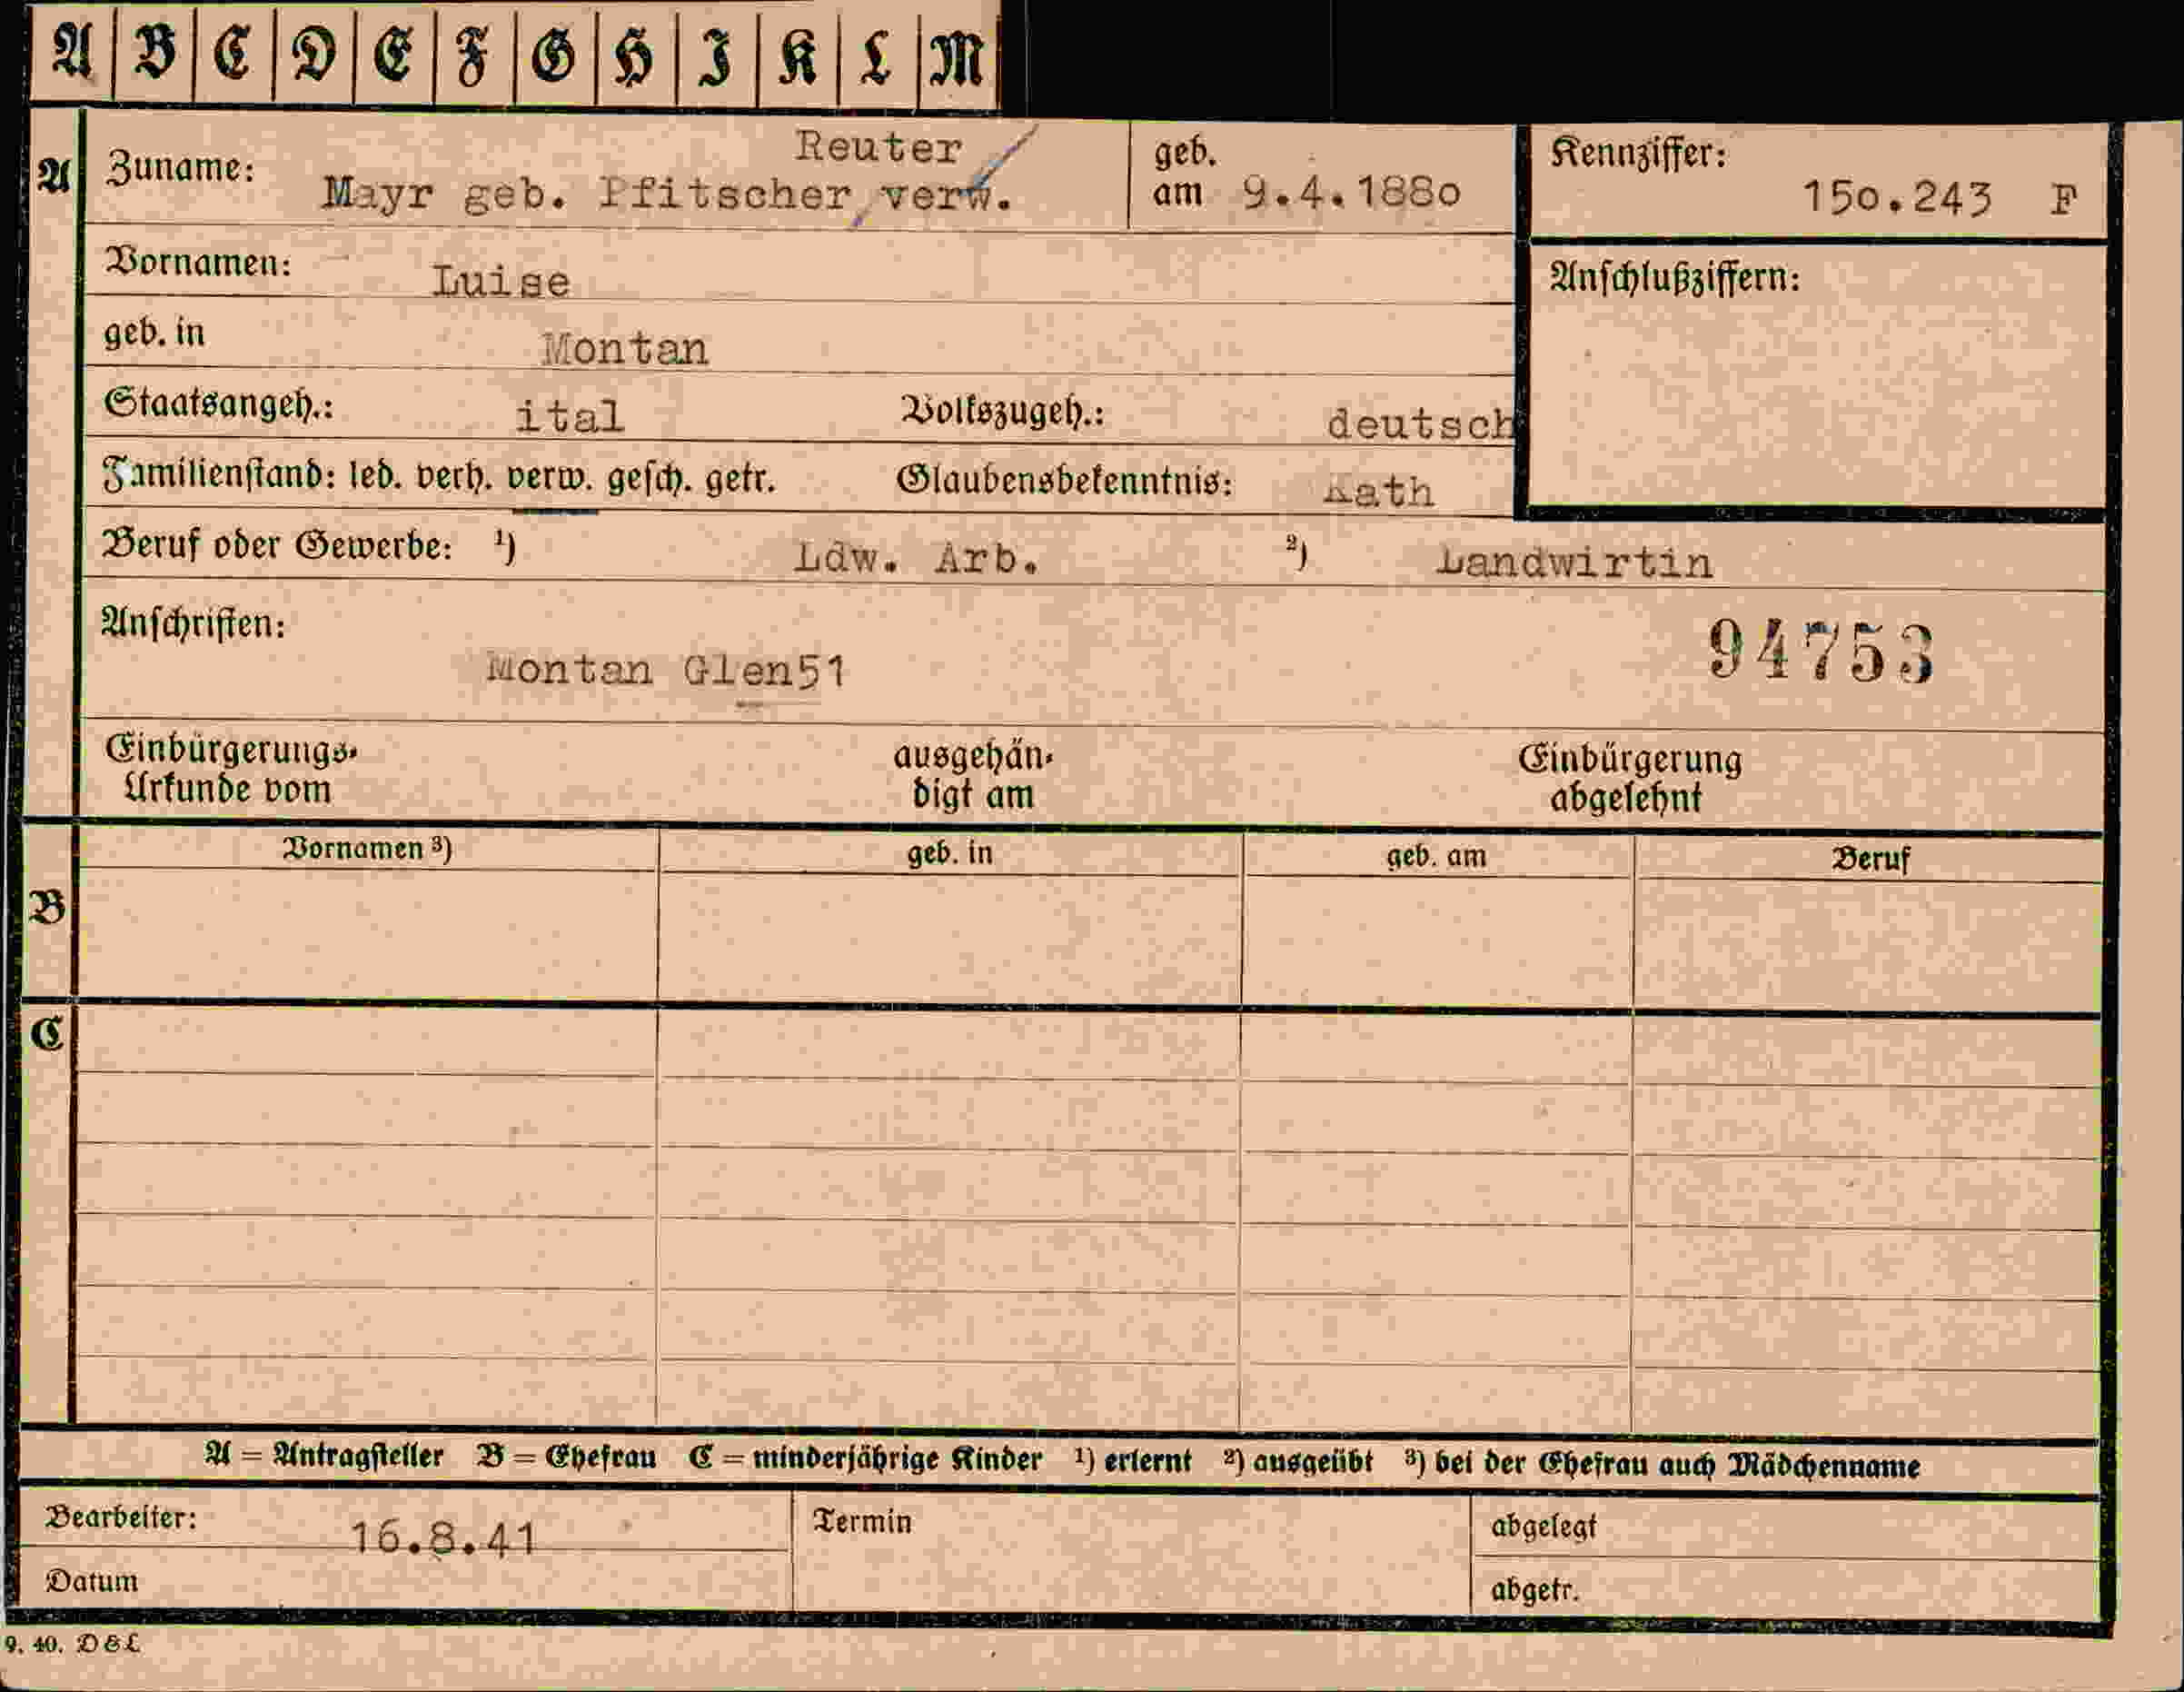 A B C D E F G H I K L M
A
Zuname: Mayr geb. Pfitscher, verw. Reuter
geb. am 9.4.1880
Kennziffer: 150.243 F
Vornamen: Luise
Anschlußziffern:
geb. in Montan
Staatsangeh.: ital Volkszugeh.: deutsch
Familienstand: led. verh. verw. gesch. getr. Glaubensbekenntnis: Kath
Beruf oder Gewerbe: 1) Ldw. Arb. 2) Landwirtin
Anschriften:
Montan Glen51
94753
Einbürgerungs-
Urkunde vom
ausgehän-
digt am
Einbürgerung
abgelehnt
Vornamen 3) geb. in geb. am Beruf
B
C
A = Antragsteller B = Ehefrau C = minderjährige Kinder 1) erlernt 2) ausgeübt 3) bei der Ehefrau auch Mädchenname
Bearbeiter: 16.8.41 Termin abgelegt
Datum abgetr.
9. 40. D&L